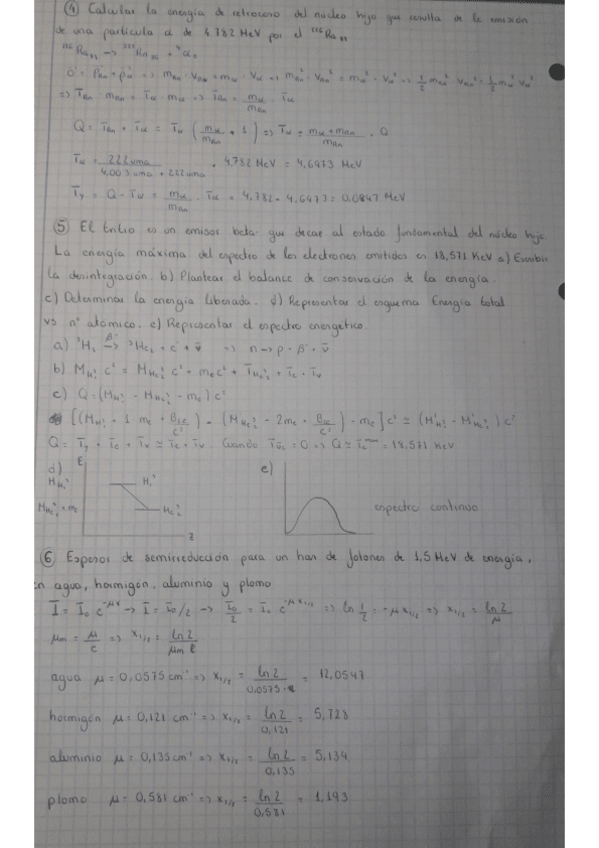 ④ Calcular la energía de retroceso del núcleo hijo que resulta de la emisión
de una partícula α de 4.782 MeV por el ²²⁶Ra₈₈
²²⁶Ra₈₈ → ²²²Rn₈₆ + ⁴α₂
=> T_Rn · m_Rn = T_α · m_α => T_Rn = m_α/m_Rn · T_α
Q = T_Rn + T_α = T_α (m_α/m_Rn + 1) => T_α = m_Rn/(m_α + m_Rn) · Q
T_α = 222 uma / (4.003 uma + 222 uma) · 4.782 MeV = 4.6973 MeV
T_y = Q - T_α = m_α/m_Rn · T_α = 4.782 - 4.6973 = 0.0847 MeV
⑤ El tritio es un emisor beta que decae al estado fundamental del núcleo hijo.
La energía máxima del espectro de los electrones emitidos es 18,571 KeV a) Escribir
la desintegración. b) Plantear el balance de conservación de la energía.
c) Determinar la energía liberada. d) Representar el esquema Energía total
vs nº atómico. e) Representar el espectro energético.
a) ³H₁ →(β⁻) ³He₂ + e⁻ + ν̄ => n → p + β⁻ + ν̄
b) M_H c² = M_He c² + m_e c² + T_He + T_e + T_ν
c) Q = (M_H - M_He - m_e) c²
Q = T_y + T_e + T_ν ≈ T_e + T_ν . Cuando T_ν = 0 => Q ≈ T_e = 18.571 KeV
d) E
e)
espectro continuo
⑥ Espesor de semirreducción para un haz de fotones de 1,5 MeV de energía,
en agua, hormigón, aluminio y plomo
I = I₀ e^(-μx) → I = I₀/2 → I₀/2 = I₀ e^(-μx₁/₂) => ln 1/2 = -μ x₁/₂ => x₁/₂ = ln 2/μ
μm = μ/ρ => x₁/₂ = ln 2/(μm ρ)
agua μ = 0,0575 cm⁻¹ => x₁/₂ = ln 2/0,0575 = 12,0547
hormigón μ = 0,121 cm⁻¹ => x₁/₂ = ln 2/0,121 = 5,728
aluminio μ = 0,135 cm⁻¹ => x₁/₂ = ln 2/0,135 = 5,134
plomo μ = 0,581 cm⁻¹ => x₁/₂ = ln 2/0,581 = 1,193